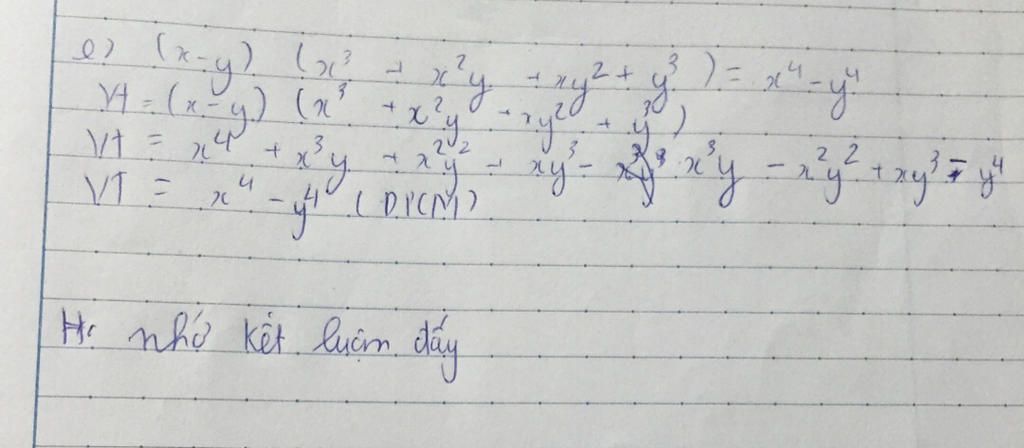 e) (x-y) (x³ + x²y + xy² + y³) = x⁴ - y⁴
VT = (x-y) (x³ + x²y + xy² + y³)
VT = x⁴ + x³y + x²y² + xy³ - x³y - x²y² + xy³ - y⁴
VT = x⁴ - y⁴ (DPCM)
H: nhớ kết luận đấy